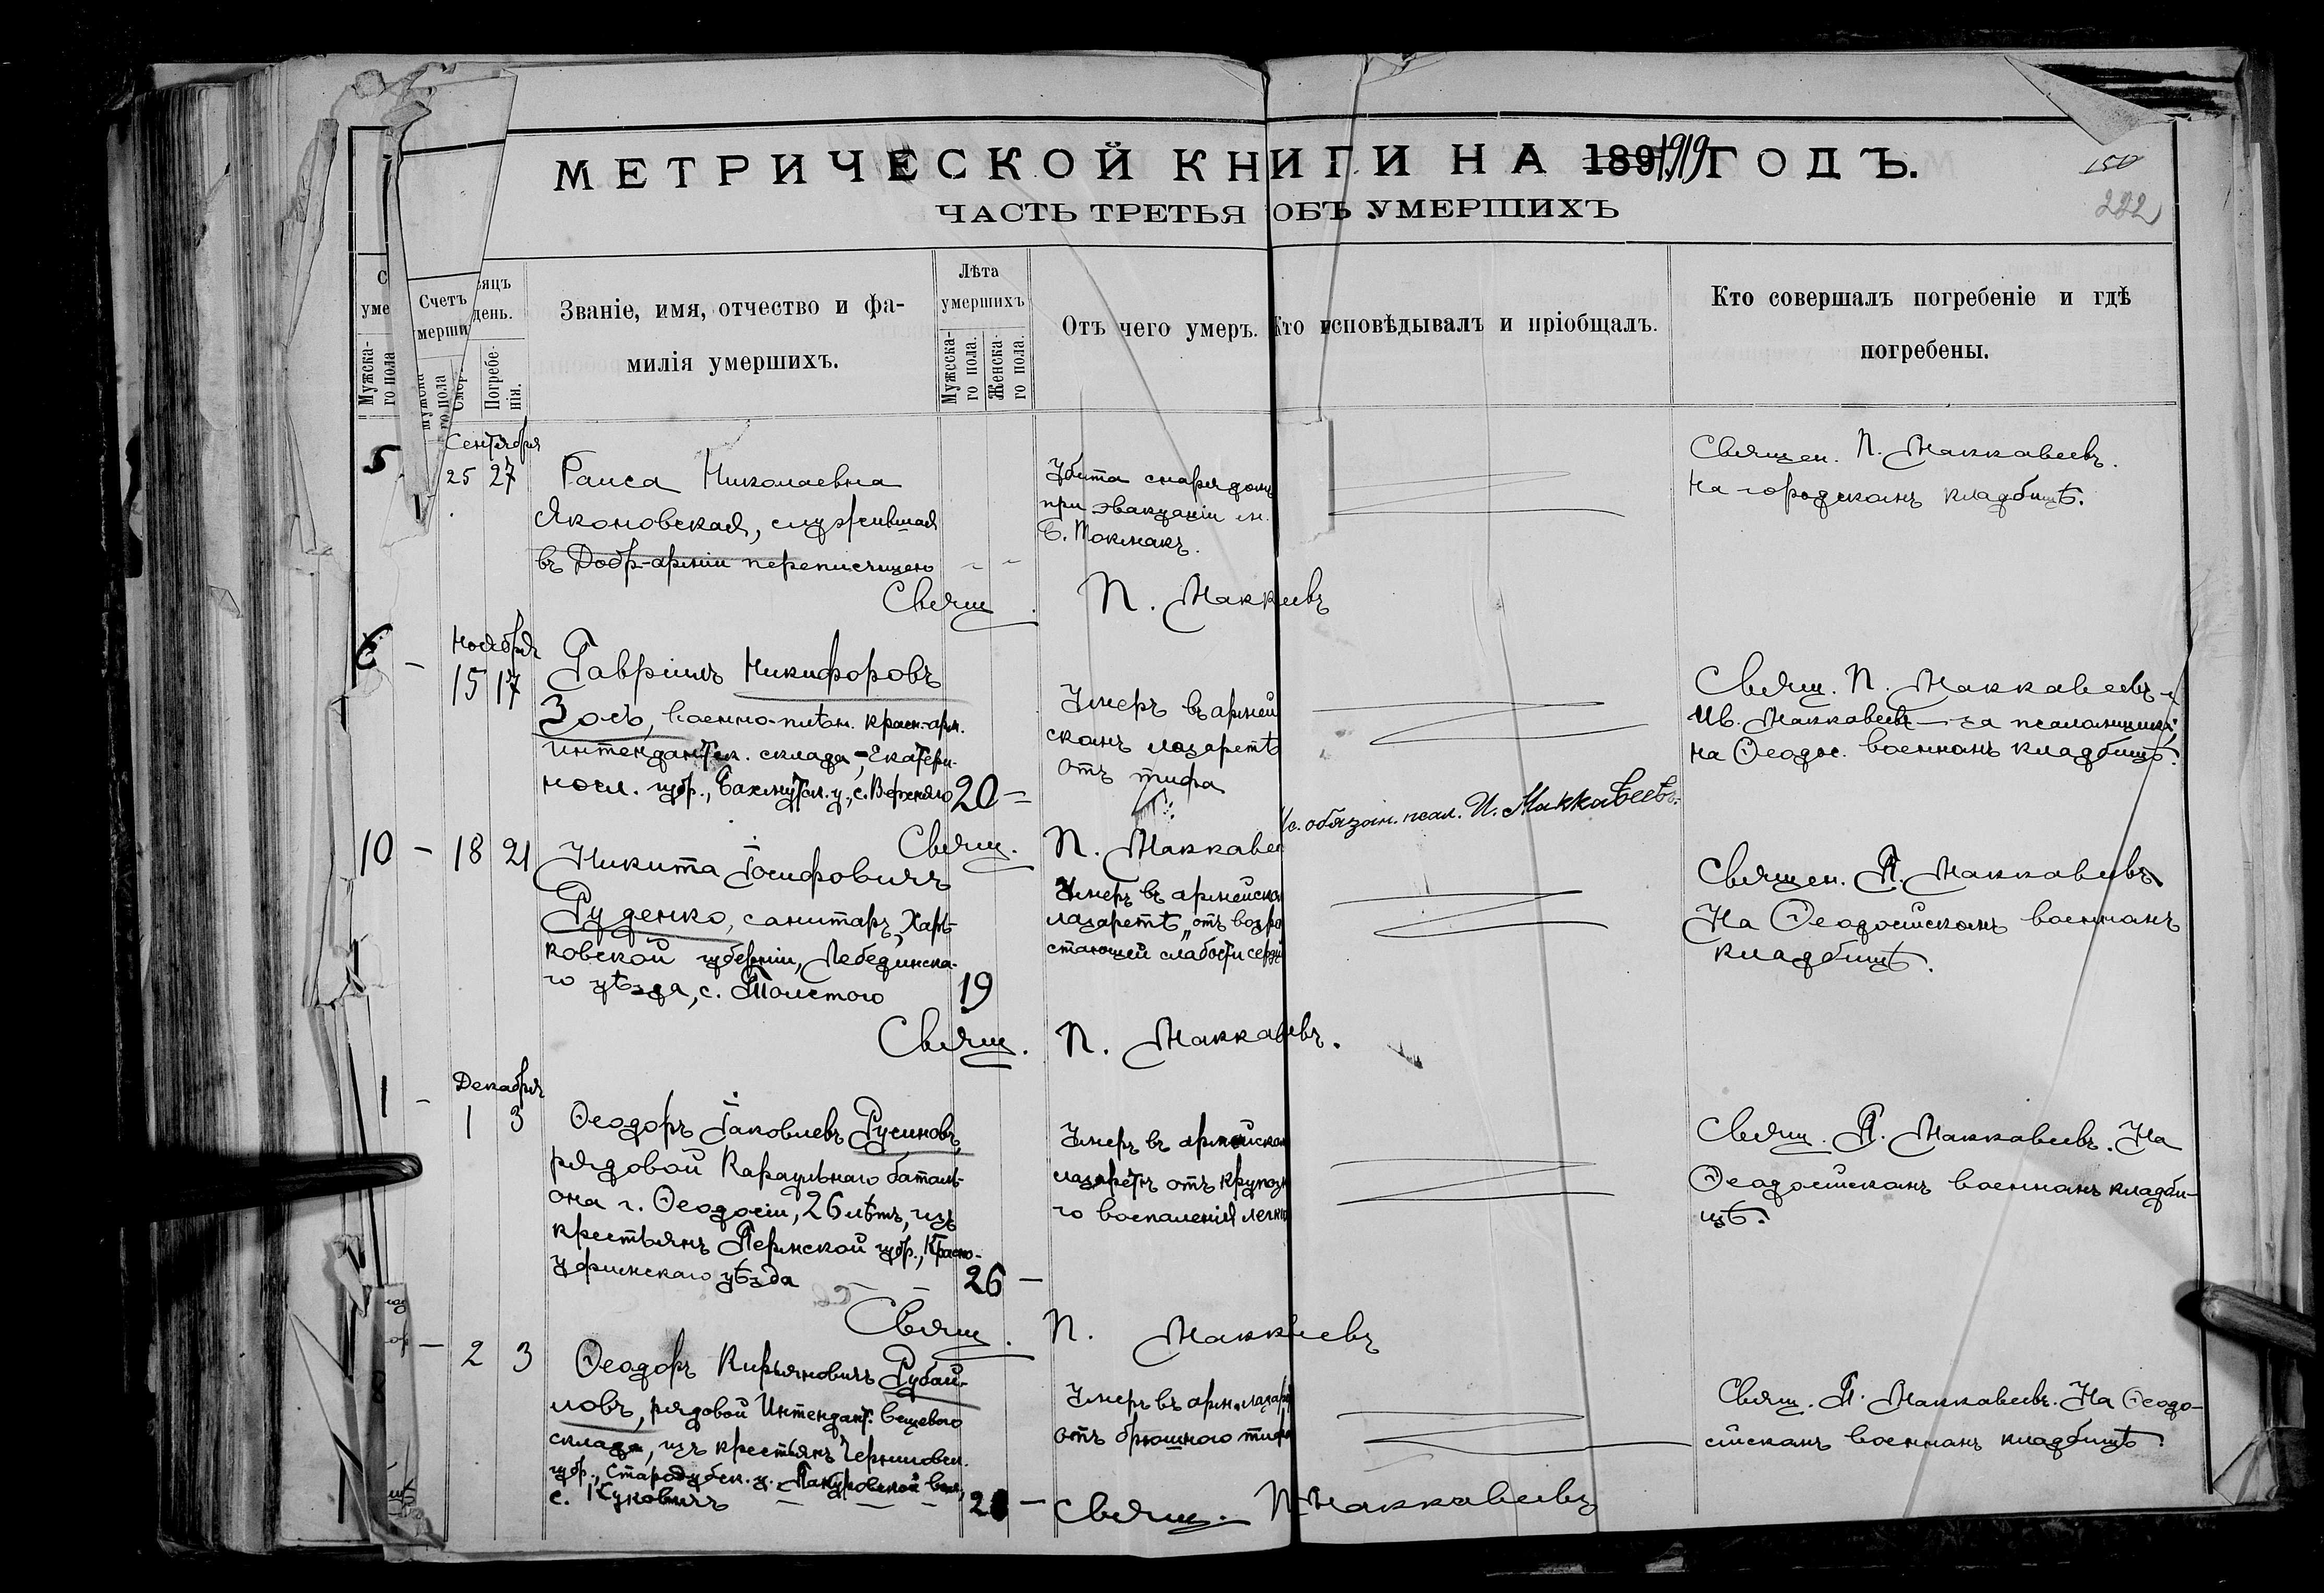 МЕТРИЧЕСКОЙ КНИГИ НА 1891919 ГОДЪ.
ЧАСТЬ ТРЕТЬЯ ОБЪ УМЕРШИХЪ
150
222
Счетъ
Мужска-
го пола
Погребе-
нія.
Званіе, имя, отчество и фа-
милія умершихъ.
Лѣта
умершихъ
Мужска-
го пола.
Женска-
го пола.
Отъ чего умеръ.
Кто исповѣдывалъ и пріобщалъ.
Кто совершалъ погребеніе и гдѣ
погребены.
5
Сентября
25 27
Раиса Николаевна
Яконовская, служившая
въ Добр-арміи переписчицею
Убита снарядомъ
при эвакуаціи м.
Б. Токмакъ.
Священ. П. Маккавеевъ.
На городскомъ кладбищѣ.
Свящ. П. Маккавеевъ
6 -
Ноября
15 17
Гавріилъ Никифоровъ
Зось, военно-плѣн. красн.-арм.
интендантск. склада, Екатери-
носл. губ., Бахмутск. у., с. Верхняго
20 -
Умеръ въ армей
скомъ лазаретѣ
отъ тифа
Свящ. П. Маккавеевъ и
Ив. Маккавеевъ - за псаломщика;
на Ѳеодос. военномъ кладбищѣ.
Свящ. П. Маккавее
Ис. обязан. псал. И. Маккавеевъ.
10 - 18 21
Никита Іосифовичъ
Руденко, санитаръ, Харь-
ковской губерніи, Лебединска-
го уѣзда, с. Толстого
19
Умеръ въ армейском
лазаретѣ „отъ возра
стающей слабости серд
Священ. П. Маккавеевъ
На Ѳеодосійскомъ военномъ
кладбищѣ.
Свящ. П. Маккавеевъ.
1 -
Декабря
1 3
Ѳеодоръ Іаковлевъ Русиновъ,
рядовой Караульнаго баталь-
она г. Ѳеодосіи, 26 лѣтъ, изъ
крестьянъ Пермской губ., Красно-
уфимскаго уѣзда
26 -
Умеръ въ армейском
лазаретѣ отъ крупозн
го воспаленія легки
Свящ. П. Маккавеевъ. На
Ѳеодосійскомъ военномъ кладби-
щѣ.
Свящ. П. Маккавеевъ
- 2 3
Ѳеодоръ Кирьяновичъ Рубай-
ловъ, рядовой Интендант. вещевого
склада, изъ крестьянъ Черниговск.
губ., Стародубск. у.
с. Куковичъ
Умеръ въ арм. лазар
отъ брюшного тифа
Свящ. П. Маккавеевъ. На Ѳеодо-
сійскомъ военномъ кладбищѣ
Свящ. П. Маккавеевъ